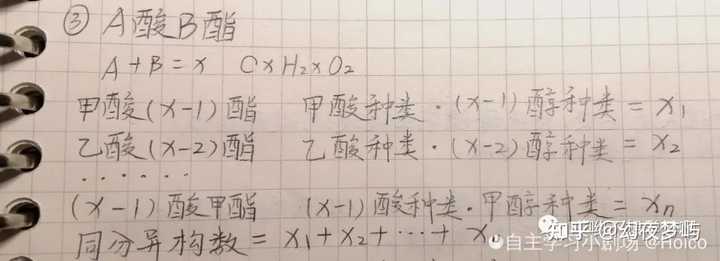 ③ A酸B酯
A+B=x CxH₂xO₂
甲酸(x-1)酯 甲酸种类·(x-1)醇种类=x₁
乙酸(x-2)酯 乙酸种类·(x-2)醇种类=x₂
······
(x-1)酸甲酯 (x-1)酸种类·甲醇种类=xₙ
同分异构数=x₁+x₂+···+x
知乎 @幻夜梦屿
自主学习小剧场 @Hoico